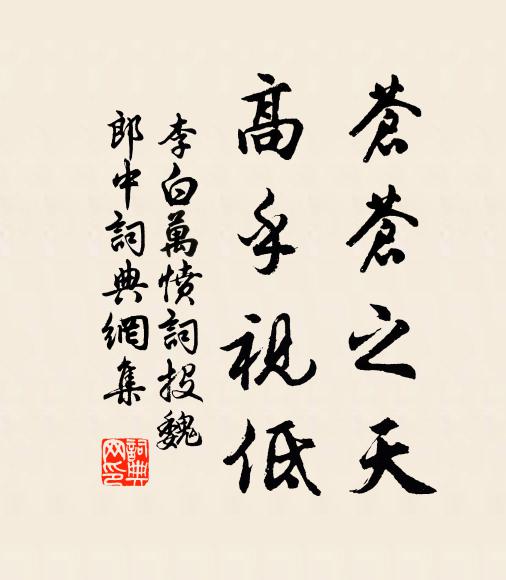 蒼蒼之天
高乎視低
李白萬憤詞投魏
郎中詞典網集
詞典网印